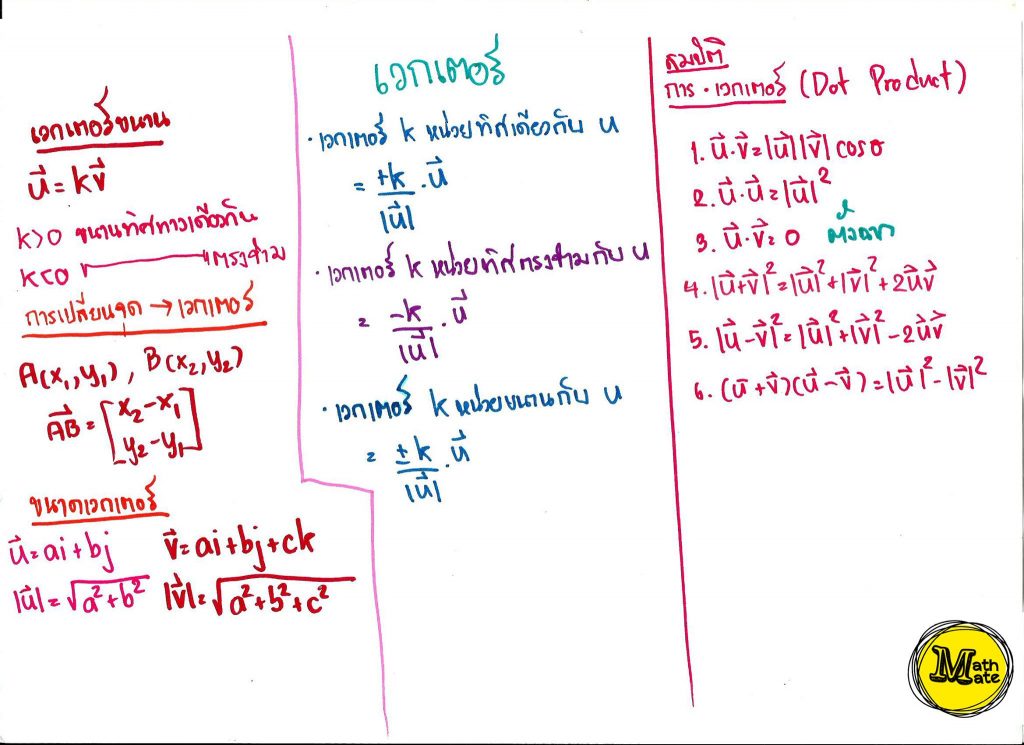 เวกเตอร์ขนาน
u⃗ = kv⃗
k>0 ขนานทิศทางเดียวกัน
k<0 " ตรงข้าม
การเปลี่ยนจุด → เวกเตอร์
A(x₁,y₁), B(x₂,y₂)
AB⃗ = [x₂-x₁
y₂-y₁]
ขนาดเวกเตอร์
u⃗ = ai+bj
|u⃗| = √a²+b²
v⃗ = ai+bj+ck
|v⃗| = √a²+b²+c²
เวกเตอร์
· เวกเตอร์ k หน่วยทิศเดียวกับ u
= +k/|u⃗| · u⃗
· เวกเตอร์ k หน่วยทิศตรงข้ามกับ u
= -k/|u⃗| · u⃗
· เวกเตอร์ k หน่วยขนานกับ u
= ±k/|u⃗| · u⃗
สมบัติ
การ · เวกเตอร์ (Dot Product)
1. u⃗·v⃗ = |u⃗||v⃗| cosθ
2. u⃗·u⃗ = |u⃗|²
3. u⃗·v⃗ = 0 ตั้งฉาก
4. |u⃗+v⃗|² = |u⃗|²+|v⃗|²+2u⃗v⃗
5. |u⃗-v⃗|² = |u⃗|²+|v⃗|²-2u⃗v⃗
6. (u⃗+v⃗)(u⃗-v⃗) = |u⃗|²-|v⃗|²
Math
Mate